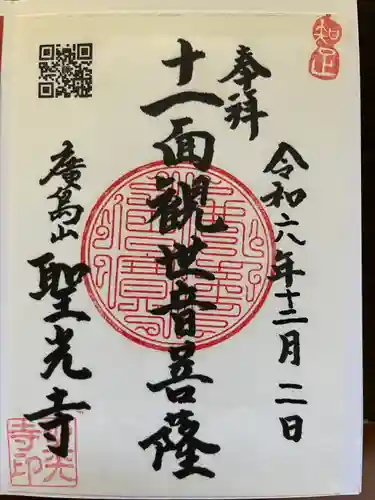 知足
令和六年十二月二日
奉拝
十一面観世音菩薩
廣島山
聖光寺
聖光寺印